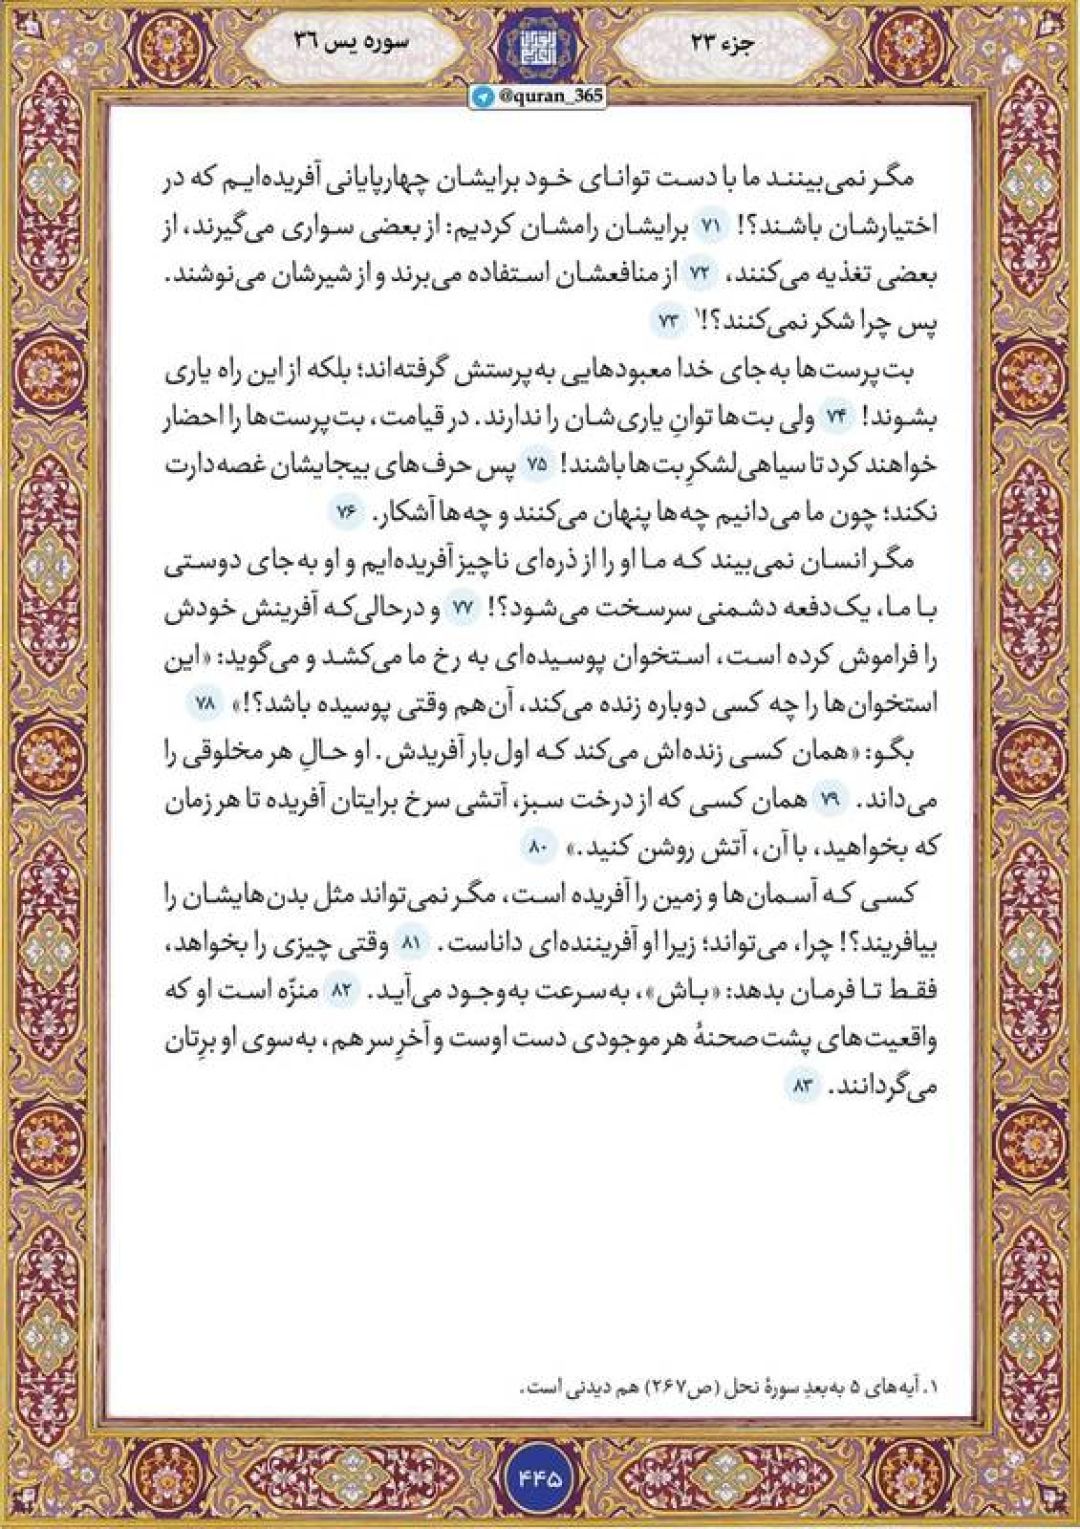 جزء ۲۳
سوره یس ۳۶
@quran_365
مگر نمی‌بینند ما با دست توانای خود برایشان چهارپایانی آفریده‌ایم که در
اختیارشان باشند؟! ۷۱ برایشان رامشان کردیم: از بعضی سواری می‌گیرند، از
بعضی تغذیه می‌کنند، ۷۲ از منافعشان استفاده می‌برند و از شیرشان می‌نوشند.
پس چرا شکر نمی‌کنند؟!۱ ۷۳
بت‌پرست‌ها به‌جای خدا معبودهایی به‌پرستش گرفته‌اند؛ بلکه از این راه یاری
بشوند! ۷۴ ولی بت‌ها توانِ یاری‌شان را ندارند. در قیامت، بت‌پرست‌ها را احضار
خواهند کرد تا سیاهی‌لشکرِ بت‌ها باشند! ۷۵ پس حرف‌های بیجایشان غصه‌دارت
نکند؛ چون ما می‌دانیم چه‌ها پنهان می‌کنند و چه‌ها آشکار. ۷۶
مگر انسان نمی‌بیند که ما او را از ذره‌ای ناچیز آفریده‌ایم و او به‌جای دوستی
با ما، یک‌دفعه دشمنی سرسخت می‌شود؟! ۷۷ و درحالی‌که آفرینش خودش
را فراموش کرده است، استخوان پوسیده‌ای به رخ ما می‌کشد و می‌گوید: «این
استخوان‌ها را چه کسی دوباره زنده می‌کند، آن‌هم وقتی پوسیده باشد؟!» ۷۸
بگو: «همان کسی زنده‌اش می‌کند که اول‌بار آفریدش. او حالِ هر مخلوقی را
می‌داند. ۷۹ همان کسی که از درخت سبز، آتشی سرخ برایتان آفریده تا هر زمان
که بخواهید، با آن، آتش روشن کنید.» ۸۰
کسی که آسمان‌ها و زمین را آفریده است، مگر نمی‌تواند مثل بدن‌هایشان را
بیافریند؟! چرا، می‌تواند؛ زیرا او آفریننده‌ای داناست. ۸۱ وقتی چیزی را بخواهد،
فقط تا فرمان بدهد: «باش»، به‌سرعت به‌وجود می‌آید. ۸۲ منزّه است او که
واقعیت‌های پشت‌صحنهٔ هر موجودی دست اوست و آخرِ سر هم، به‌سوی او برِتان
می‌گردانند. ۸۳
۱. آیه‌های ۵ به‌بعدِ سورهٔ نحل (ص۲۶۷) هم دیدنی است.
۴۴۵